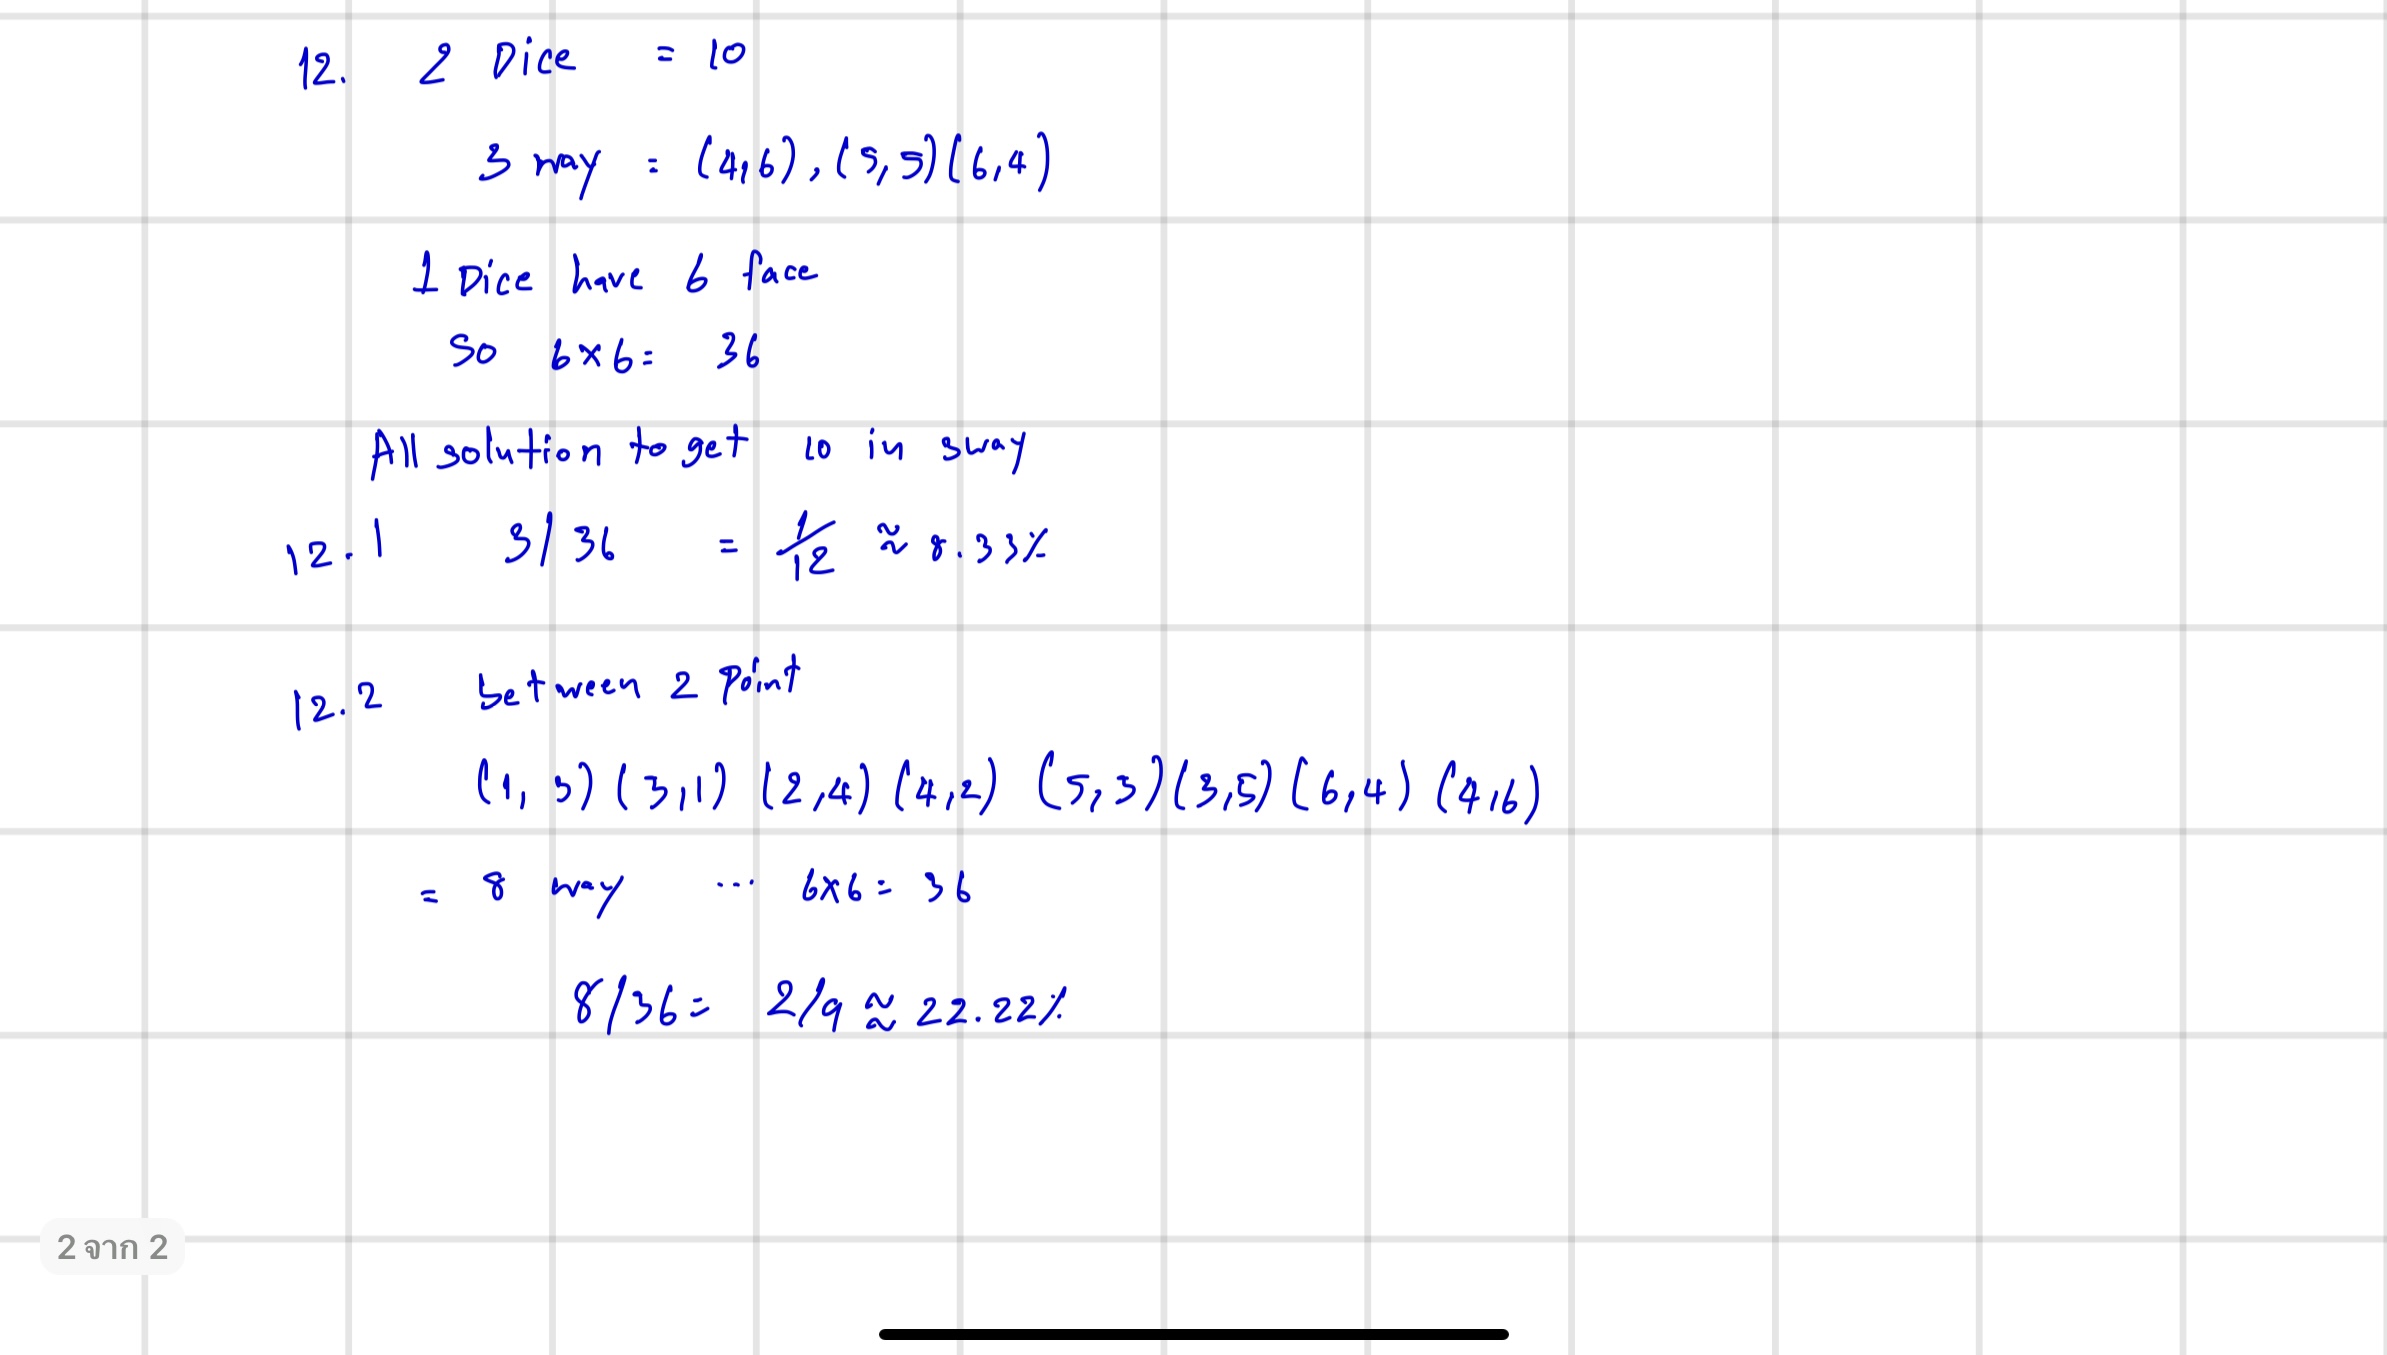 12. 2 Dice = 10
3 way = (4,6), (5,5)(6,4)
1 Dice have 6 face
So 6×6= 36
All solution to get 10 in 3way
12.1 3/36 = 1/12 ≈ 8.33%
12.2 between 2 Point
(1,3)(3,1)(2,4)(4,2) (5,3)(3,5)(6,4)(4,6)
= 8 way ... 6×6= 36
8/36= 2/9 ≈ 22.22%
2 จาก 2